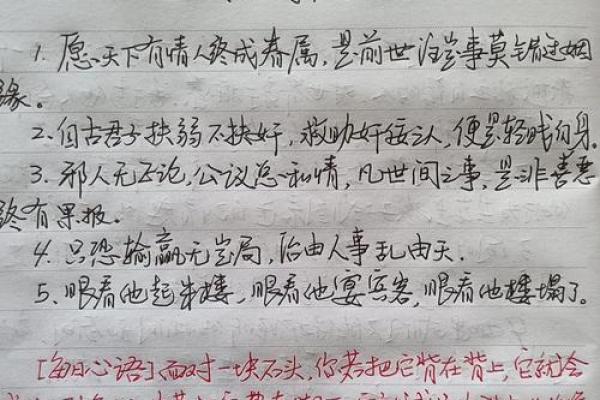 1. 愿天下有情人终成眷属,是前世注定事莫错过姻
缘。
2. 自古君子扶弱不扶奸,救助奸佞之人,便是轻贱自身。
3. 邪人无正论,公议总私情,凡世间之事,是非善恶
终有果报。
4. 只恐输赢无定局,治由人事乱由天.
5. 眼看他起朱楼,眼看他宴宾客,眼看他楼塌了。
[每日心语]面对一块石头,你若把它背在背上,它就会